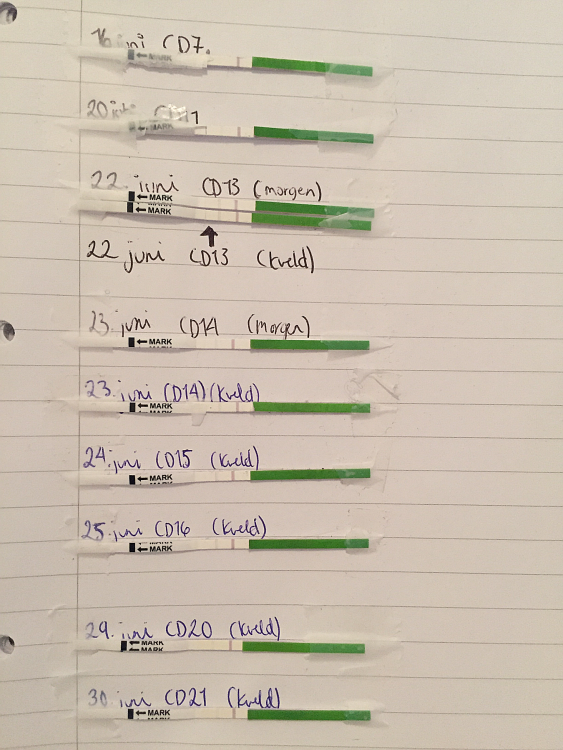 16 juni CD7.
← MARK
20 juni CD11
← MARK
22. juni CD13 (morgen)
← MARK
← MARK
22 juni CD13 (kveld)
23. juni CD14 (morgen)
← MARK
23. juni (CD14) (kveld)
← MARK
24. juni CD15 (kveld)
← MARK
25. juni CD16 (kveld)
← MARK
29. juni CD20 (kveld)
← MARK
← MARK
30 juni CD21 (kveld)
← MARK